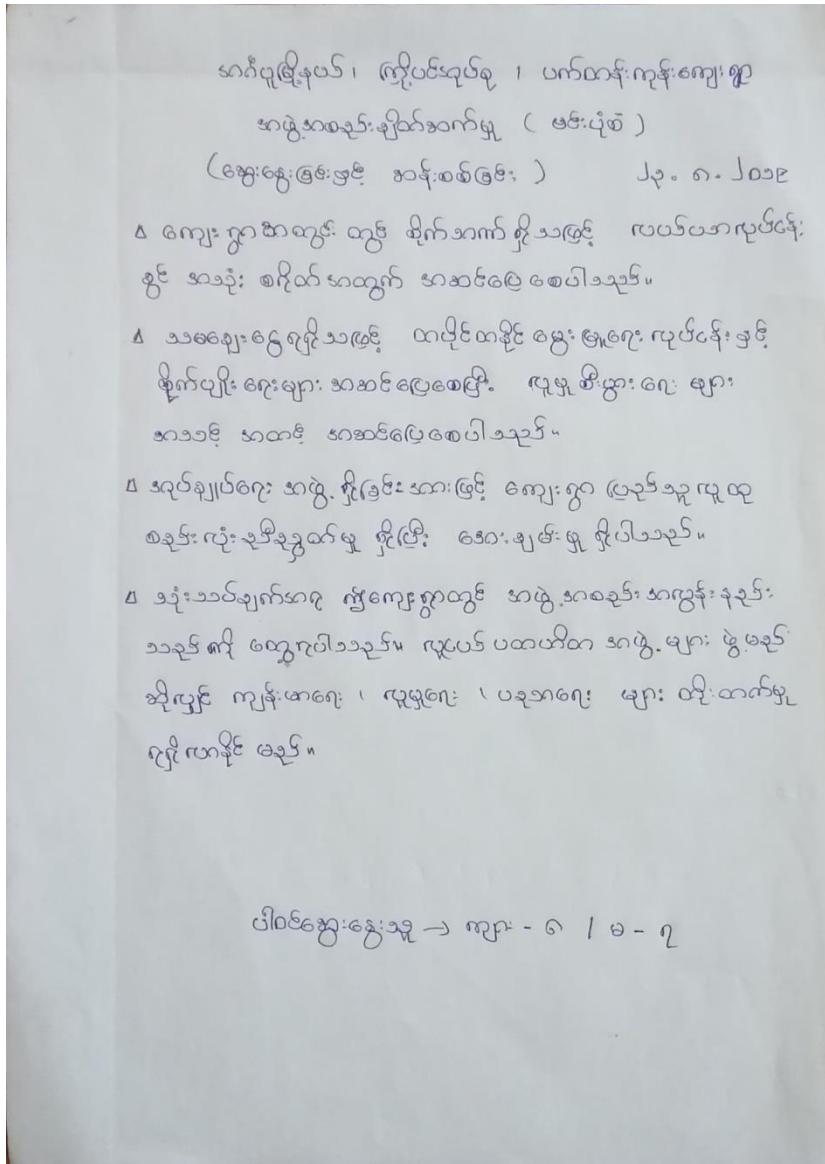 အင်္ဂပူမြို့နယ်၊ ကြို့ပင်အုပ်စု ၊ ပက်တန်းကုန်းကျေးရွာ
အဖွဲ့အစည်းချိတ်ဆက်မှု ( ဗင်းပုံစံ )
(ဆွေးနွေးခြင်းနှင့် ဆန်းစစ်ခြင်း ) ၂၃.၈.၂၀၁၉
∆ ကျေးရွာအတွင်း တွင် စိုက်ဘဏ် ရှိသဖြင့် လယ်ယာလုပ်ငန်း
ခွင် အသုံး စရိတ်အတွက် အဆင်ပြေစေပါသည်။
∆ သမချေးငွေရရှိသဖြင့် တပိုင်တနိုင် မွေးမြူရေးလုပ်ငန်းနှင့်
စိုက်ပျိုးရေးများ အဆင်ပြေစေပြီး လူမှုစီးပွားရေး များ
အသင့် အတင့် အဆင်ပြေစေပါသည်။
∆ အုပ်ချုပ်ရေး အဖွဲ့ ရှိခြင်းအားဖြင့် ကျေးရွာ ပြည်သူလူထု
စည်းလုံးညီညွတ်မှု ရှိပြီး အေးချမ်းမှု ရှိပါသည်။
∆ သုံးသပ်ချက်အရ ဤကျေးရွာတွင် အဖွဲ့အစည်း အလွန်နည်း
သည်ကို တွေ့ရပါသည်။ လူငယ် ပရဟိတ အဖွဲ့များ ဖွဲ့မည်
ဆိုလျှင် ကျန်းမာရေး ၊ လူမှုရေး ၊ ပညာရေး များ တိုးတက်မှု
ရရှိလာနိုင် မည်။
ပါဝင်ဆွေးနွေးသူ → ကျား - ၈ / မ - ၇